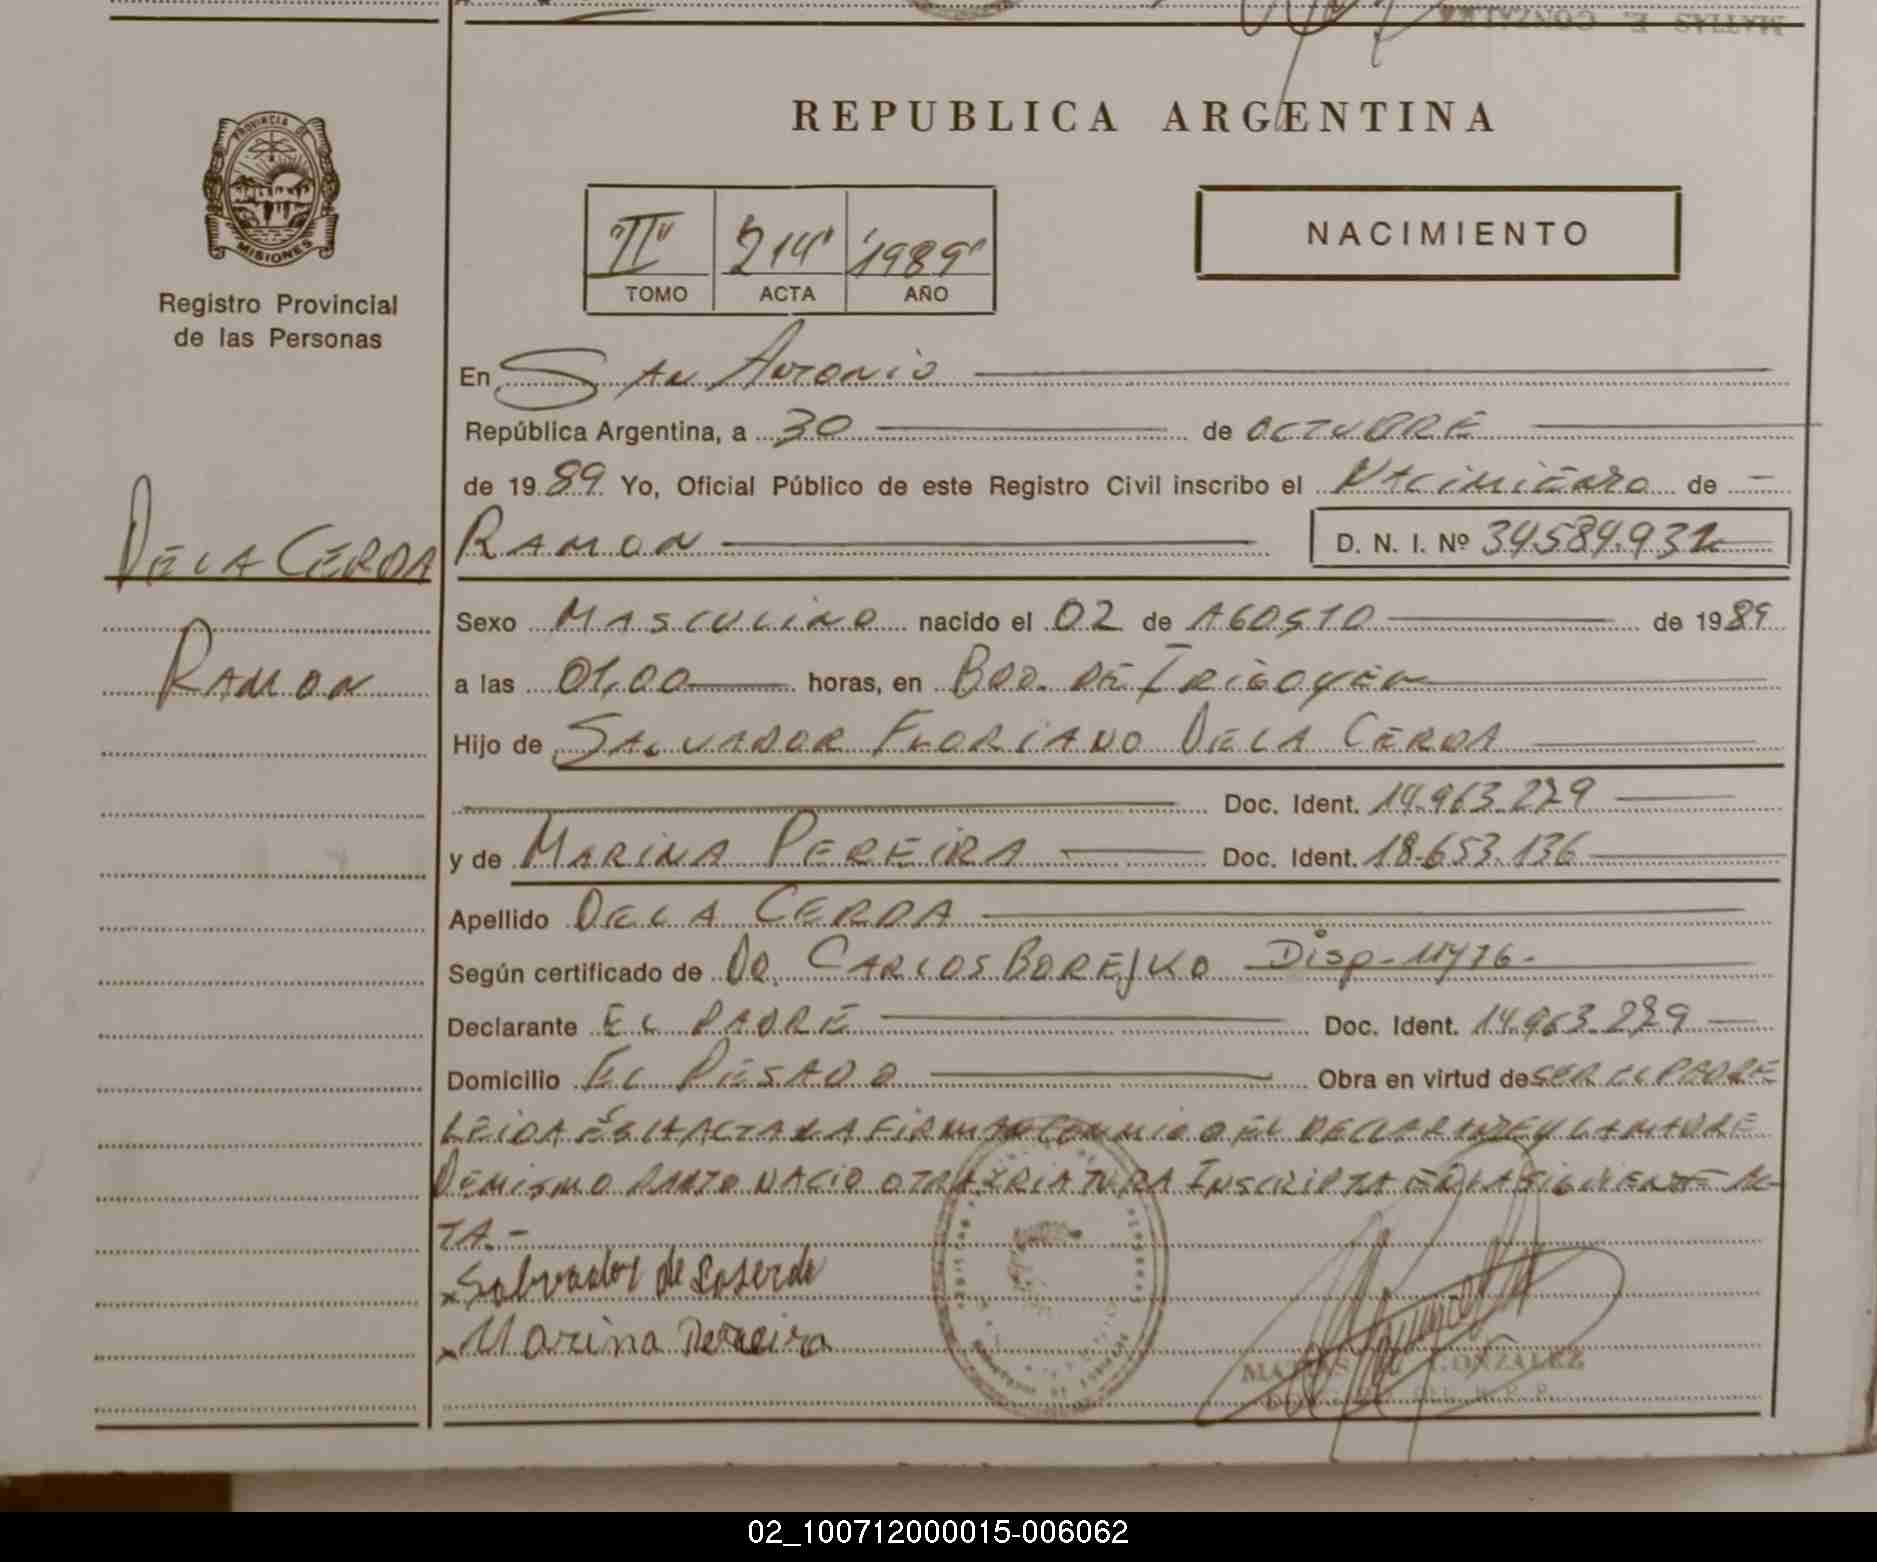 REPUBLICA ARGENTINA
PROVINCIA DE
MISIONES
Registro Provincial
de las Personas
"II" 214 "1989"
TOMO ACTA AÑO
NACIMIENTO
DE LA CERDA
RAMON
En SAN ANTONIO
República Argentina, a 30 de OCTUBRE
de 1989 Yo, Oficial Público de este Registro Civil inscribo el NACIMIENTO de
RAMON D. N. I. Nº 34.584.932
Sexo MASCULINO nacido el 02 de AGOSTO de 1989
a las 01,00 horas, en BDO. DE IRIGOYEN
Hijo de SALVADOR FLORIANO DE LA CERDA
Doc. Ident. 14.963.229
y de MARINA PEREIRA Doc. Ident. 18.653.136
Apellido DE LA CERDA
Según certificado de DR. CARLOS BOREJKO Disp-11/76-
Declarante EL PADRE Doc. Ident. 14.963.229
Domicilio EL PESADO Obra en virtud de SER EL PADRE
LEIDA ESTA ACTA LA FIRMAN CONMIGO EL DECLARANTE Y LA MADRE
DE MISMO PARTO NACIO OTRA CRIATURA INSCRIPTA EN LA SIGUIENTE AC-
TA.-
x Salvador de laserda
x Marina Pereira
GONZALEZ
02_100712000015-006062